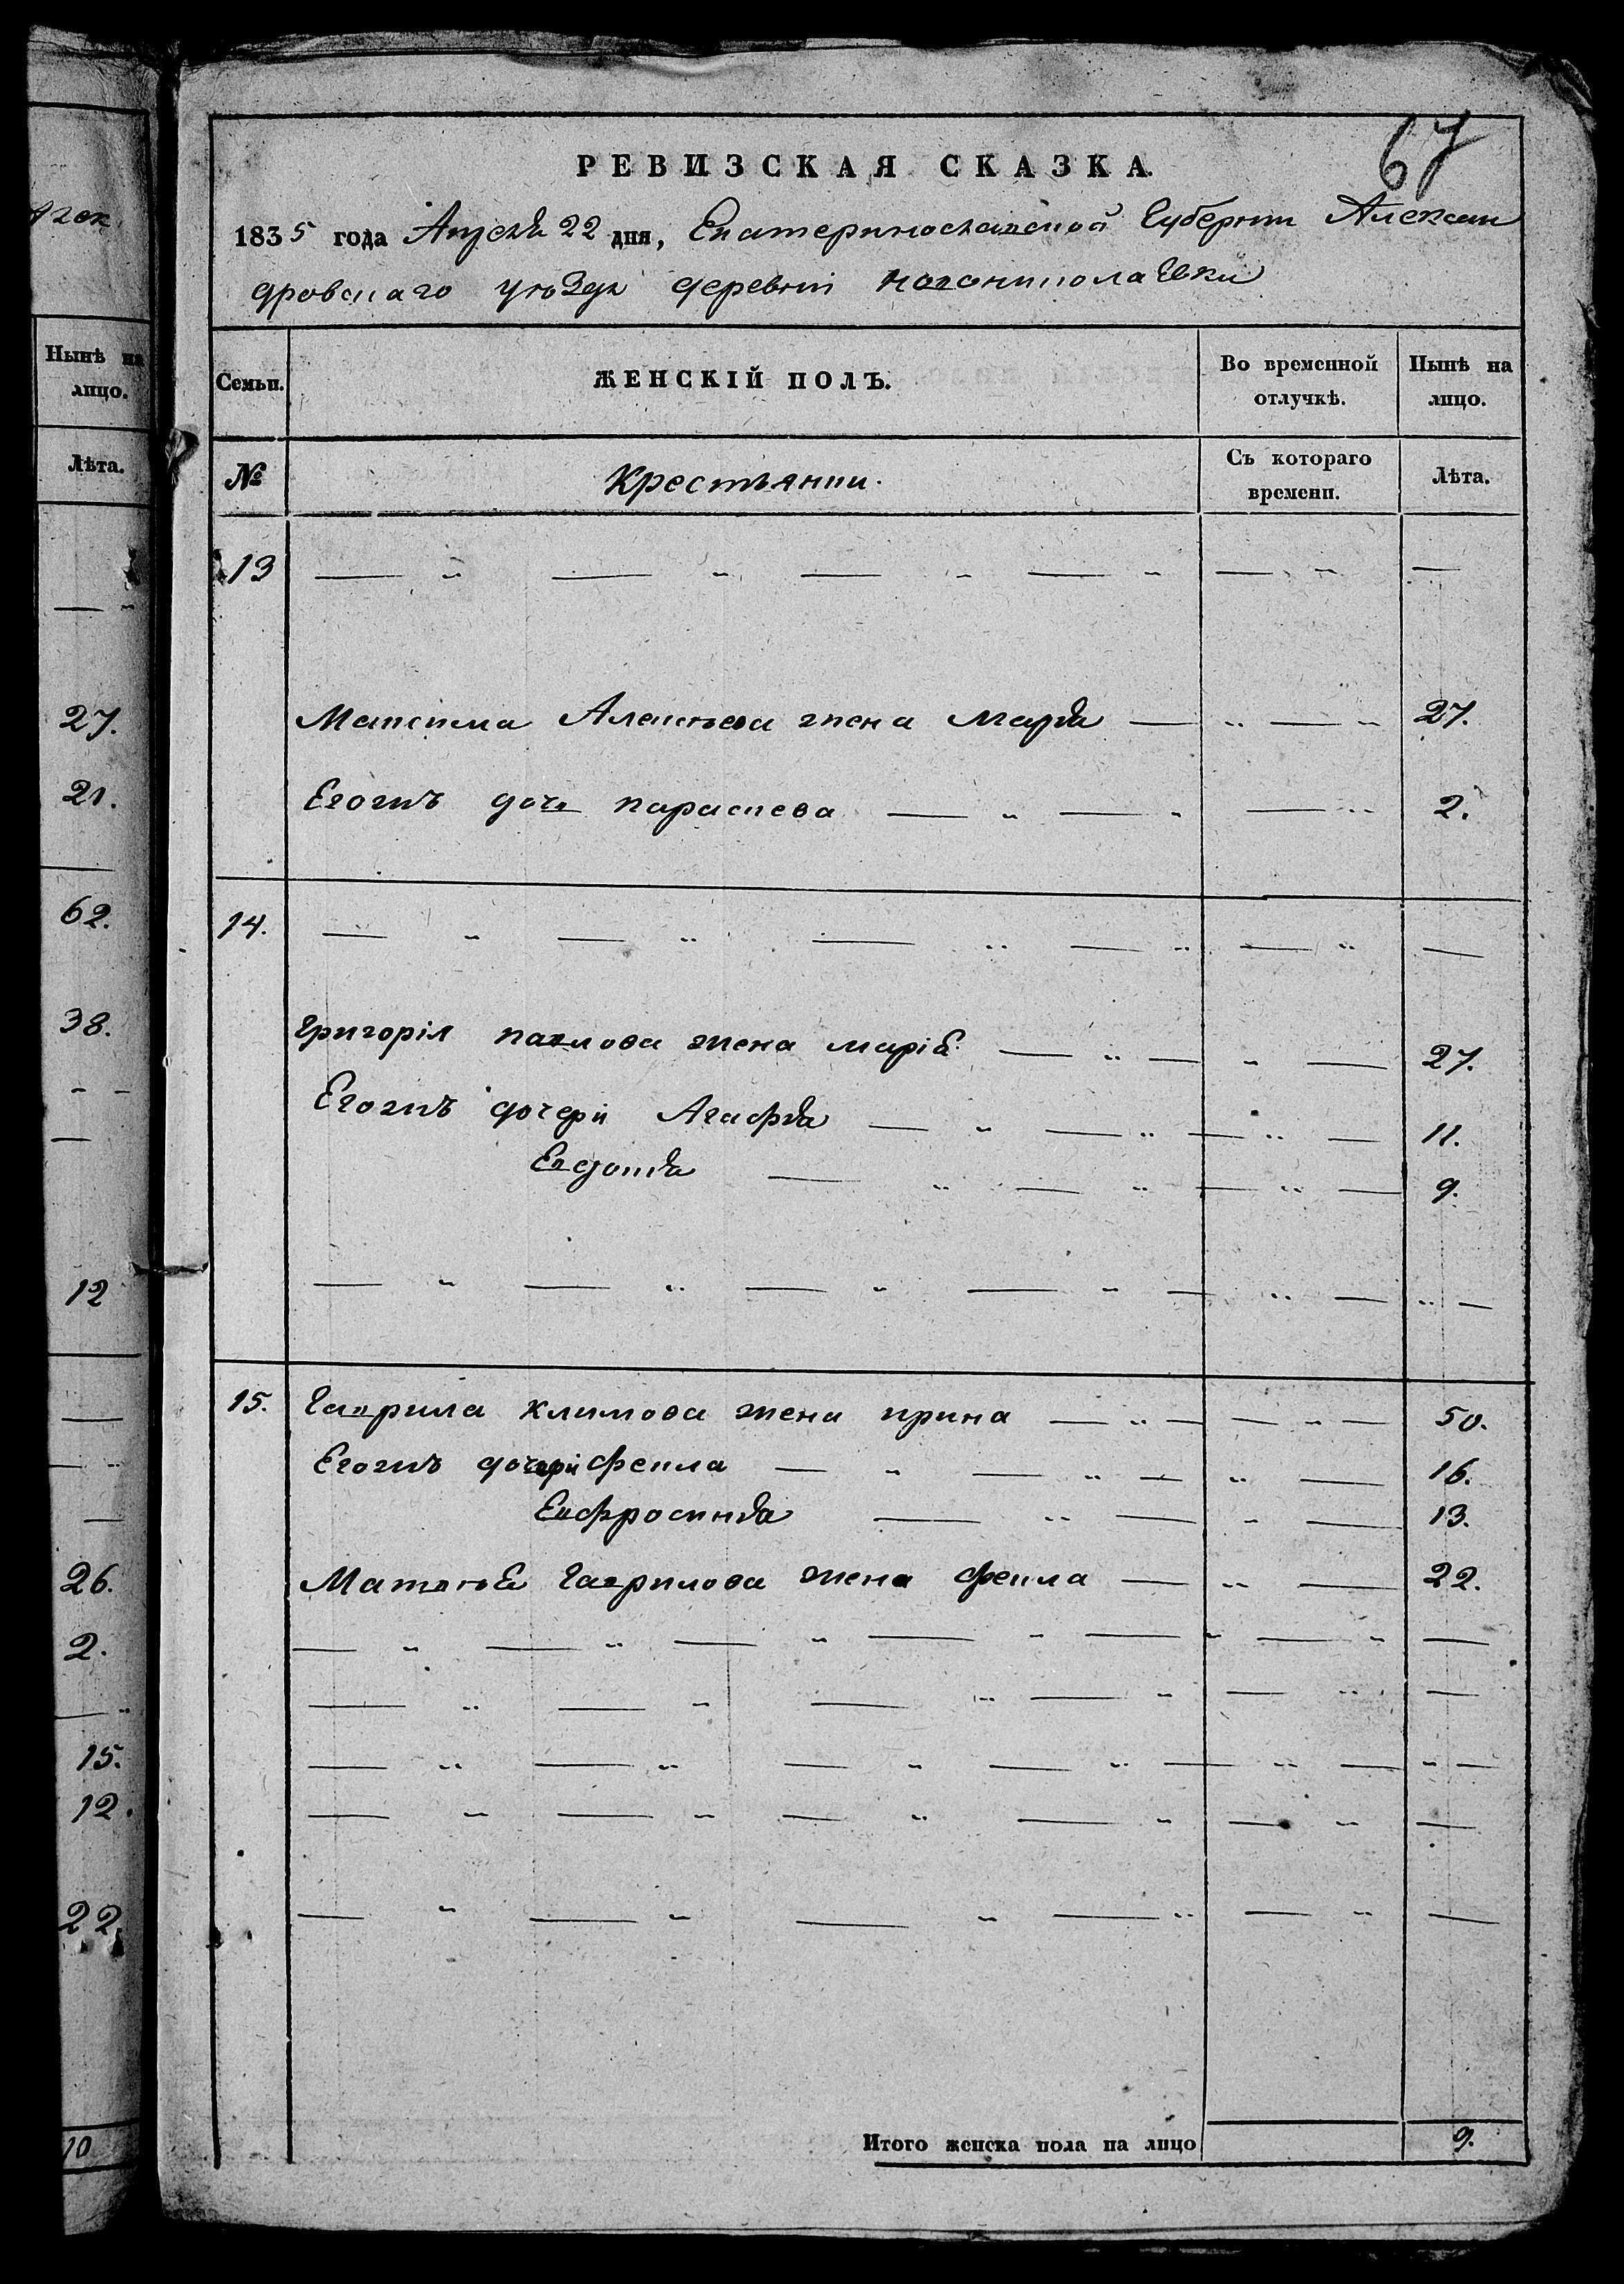 гок
Нынѣ на
лицо.
Лѣта.
27.
21.
62.
38.
12
26.
2.
15.
12.
22.
10
67
РЕВИЗСКАЯ СКАЗКА.
1835 года Апреля 22 дня, Екатеринославской Губернии Алексан
дровскаго уѣзда деревни
Семьи. ЖЕНСКІЙ ПОЛЪ. Во временной отлучкѣ. Нынѣ на лицо.
№ Крестьянки. Съ котораго времени. Лѣта.
13
Максима Алексѣева жена Марья 27.
Егогжъ дочь параскева 2.
14.
Григорія павлова жена марія 27.
Егогжъ дочери Агафья 11.
Евдокія 9.
15. Гаврила климова жена ирина 50.
Егогжъ дочери Фекла 16.
Евфросинья 13.
Матвѣя Гаврилова жена фекла 22.
Итого женска пола на лицо 9.